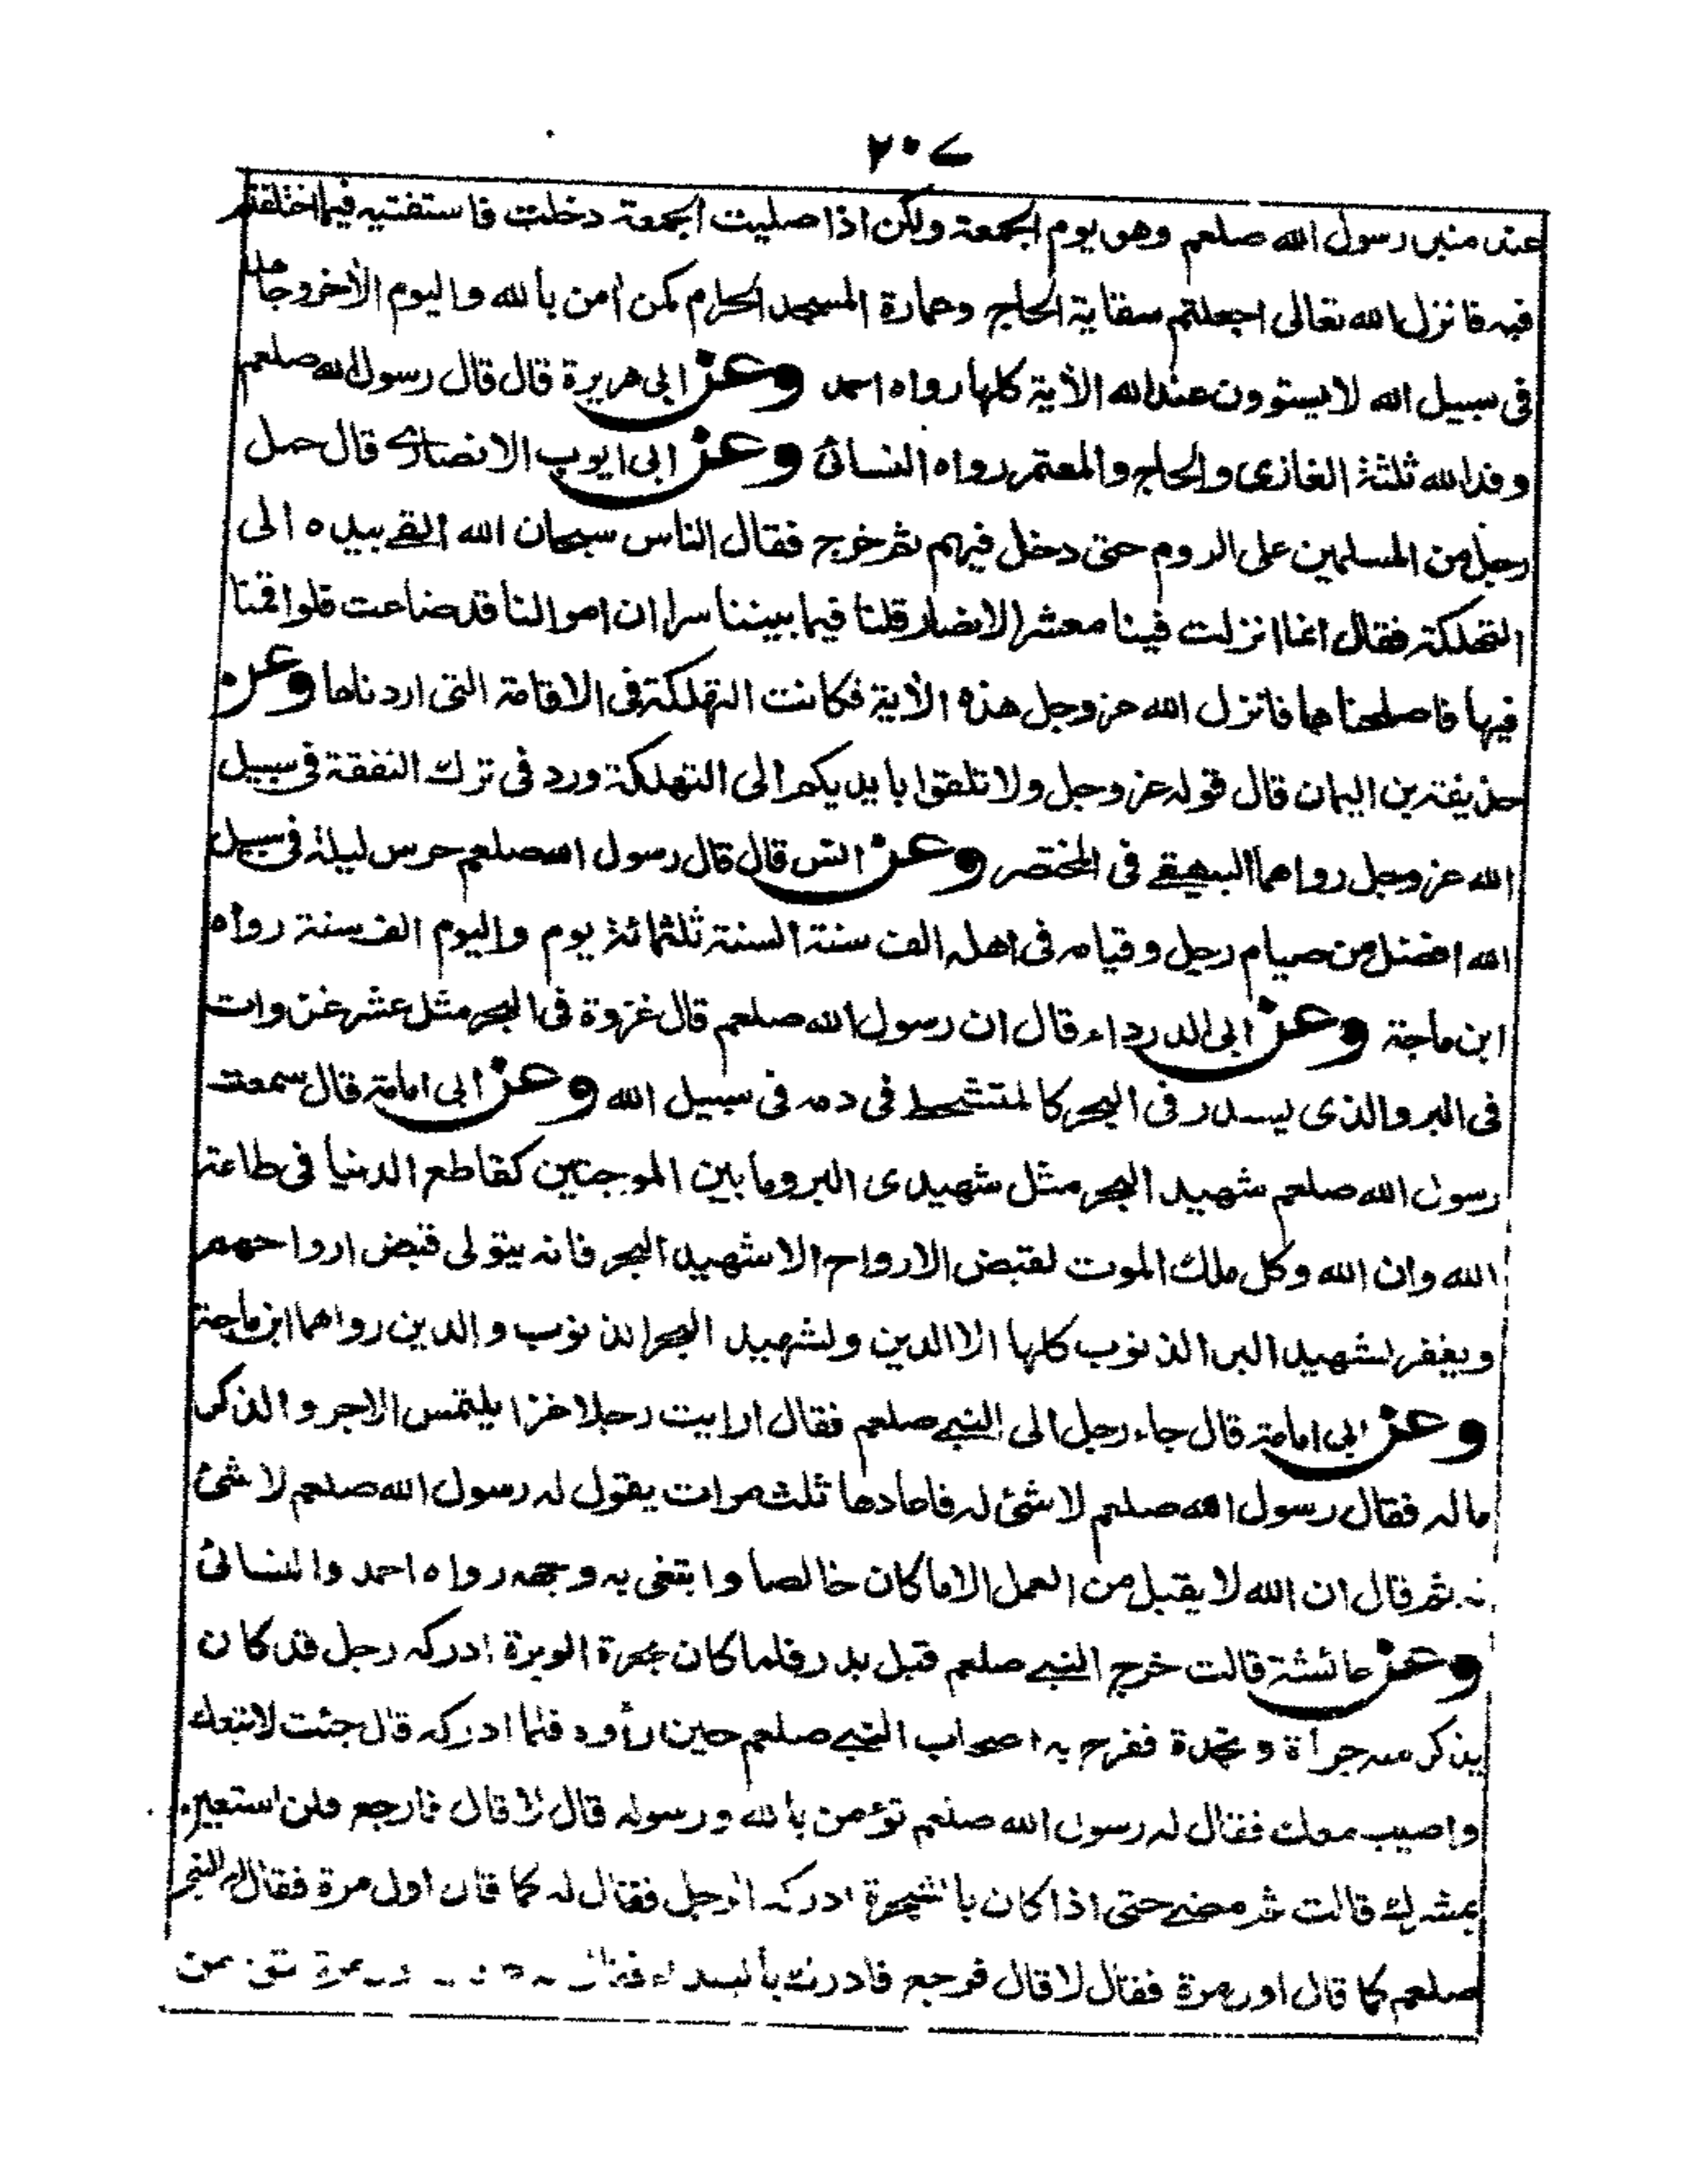 ٢٠٧
عند منبر رسول الله صلعم وهو يوم الجمعة ولكن اذا صليت الجمعة دخلت فاستفتيه فيما اختلفتم
فيه فانزل الله تعالى اجعلتم سقاية الحاج وعمارة المسجد الحرام كمن أمن بالله واليوم الأخر وجاهد
فى سبيل الله لا يستوون عند الله الأية كلها رواه احمد وعن ابى هريرة قال قال رسول الله صلعم
وفد الله ثلثة الغازى والحاج والمعتمر رواه النسائى وعن ابى ايوب الانصارى قال حمل
رجل من المسلمين على الروم حتى دخل فيهم ثم خرج فقال الناس سبحان الله القى بيده الى
التهلكة فقال انما انزلت فينا معشر الانصار قلنا فيما بيننا سرا ان اموالنا قد ضاعت فلو اقمنا
فيها فاصلحناها فانزل الله عز وجل هذه الأية فكانت التهلكة فى الاقامة التى اردناها وعن
حذيفة بن اليمان قال قوله عز وجل ولا تلقوا بايديكم الى التهلكة ورد فى ترك النفقة فى سبيل
الله عز وجل رواهما البيهقى فى المختصر وعن انس قال قال رسول الله صلعم حرس ليلة فى سبيل
الله افضل من صيام رجل وقيامه فى اهله الف سنة السنة ثلثمائة يوم واليوم الف سنة رواه
ابن ماجة وعن ابى الدرداء قال ان رسول الله صلعم قال غزوة فى البحر مثل عشر غزوات
فى البر والذى يسدر فى البحر كالمتشحط فى دمه فى سبيل الله وعن ابى امامة قال سمعت
رسول الله صلعم شهيد البحر مثل شهيدى البر وما بين الموجتين كقاطع الدنيا فى طاعة
الله وان الله وكل ملك الموت لقبض الارواح الا شهيد البحر فانه يتولى قبض ارواحهم
ويغفر لشهيد البر الذنوب كلها الا الدين ولشهيد البحر الذنوب والدين رواهما ابن ماجة
وعن ابى امامة قال جاء رجل الى النبى صلعم فقال ارايت رجلا غزا يلتمس الاجر والذكر
ماله فقال رسول الله صلعم لا شئ له فاعادها ثلث مرات يقول له رسول الله صلعم لا شئ
له ثم قال ان الله لا يقبل من العمل الا ما كان خالصا وابتغى به وجهه رواه احمد والنسائى
وعن عائشة قالت خرج النبى صلعم قبل بدر فلما كان بحرة الوبرة ادركه رجل قد كان
يذكر منه جرأة ونجدة ففرح به اصحاب النبى صلعم حين رأوه فلما ادركه قال جئت لاتبعك
واصيب معك فقال له رسول الله صلعم تؤمن بالله ورسوله قال لا قال فارجع فلن استعين
بمشرك قالت ثم مضى حتى اذا كان بالشجرة ادركه الرجل فقال له كما قال اول مرة فقال له النبى
صلعم كما قال اول مرة فقال لا قال فرجع فادركه بالبيداء فقال